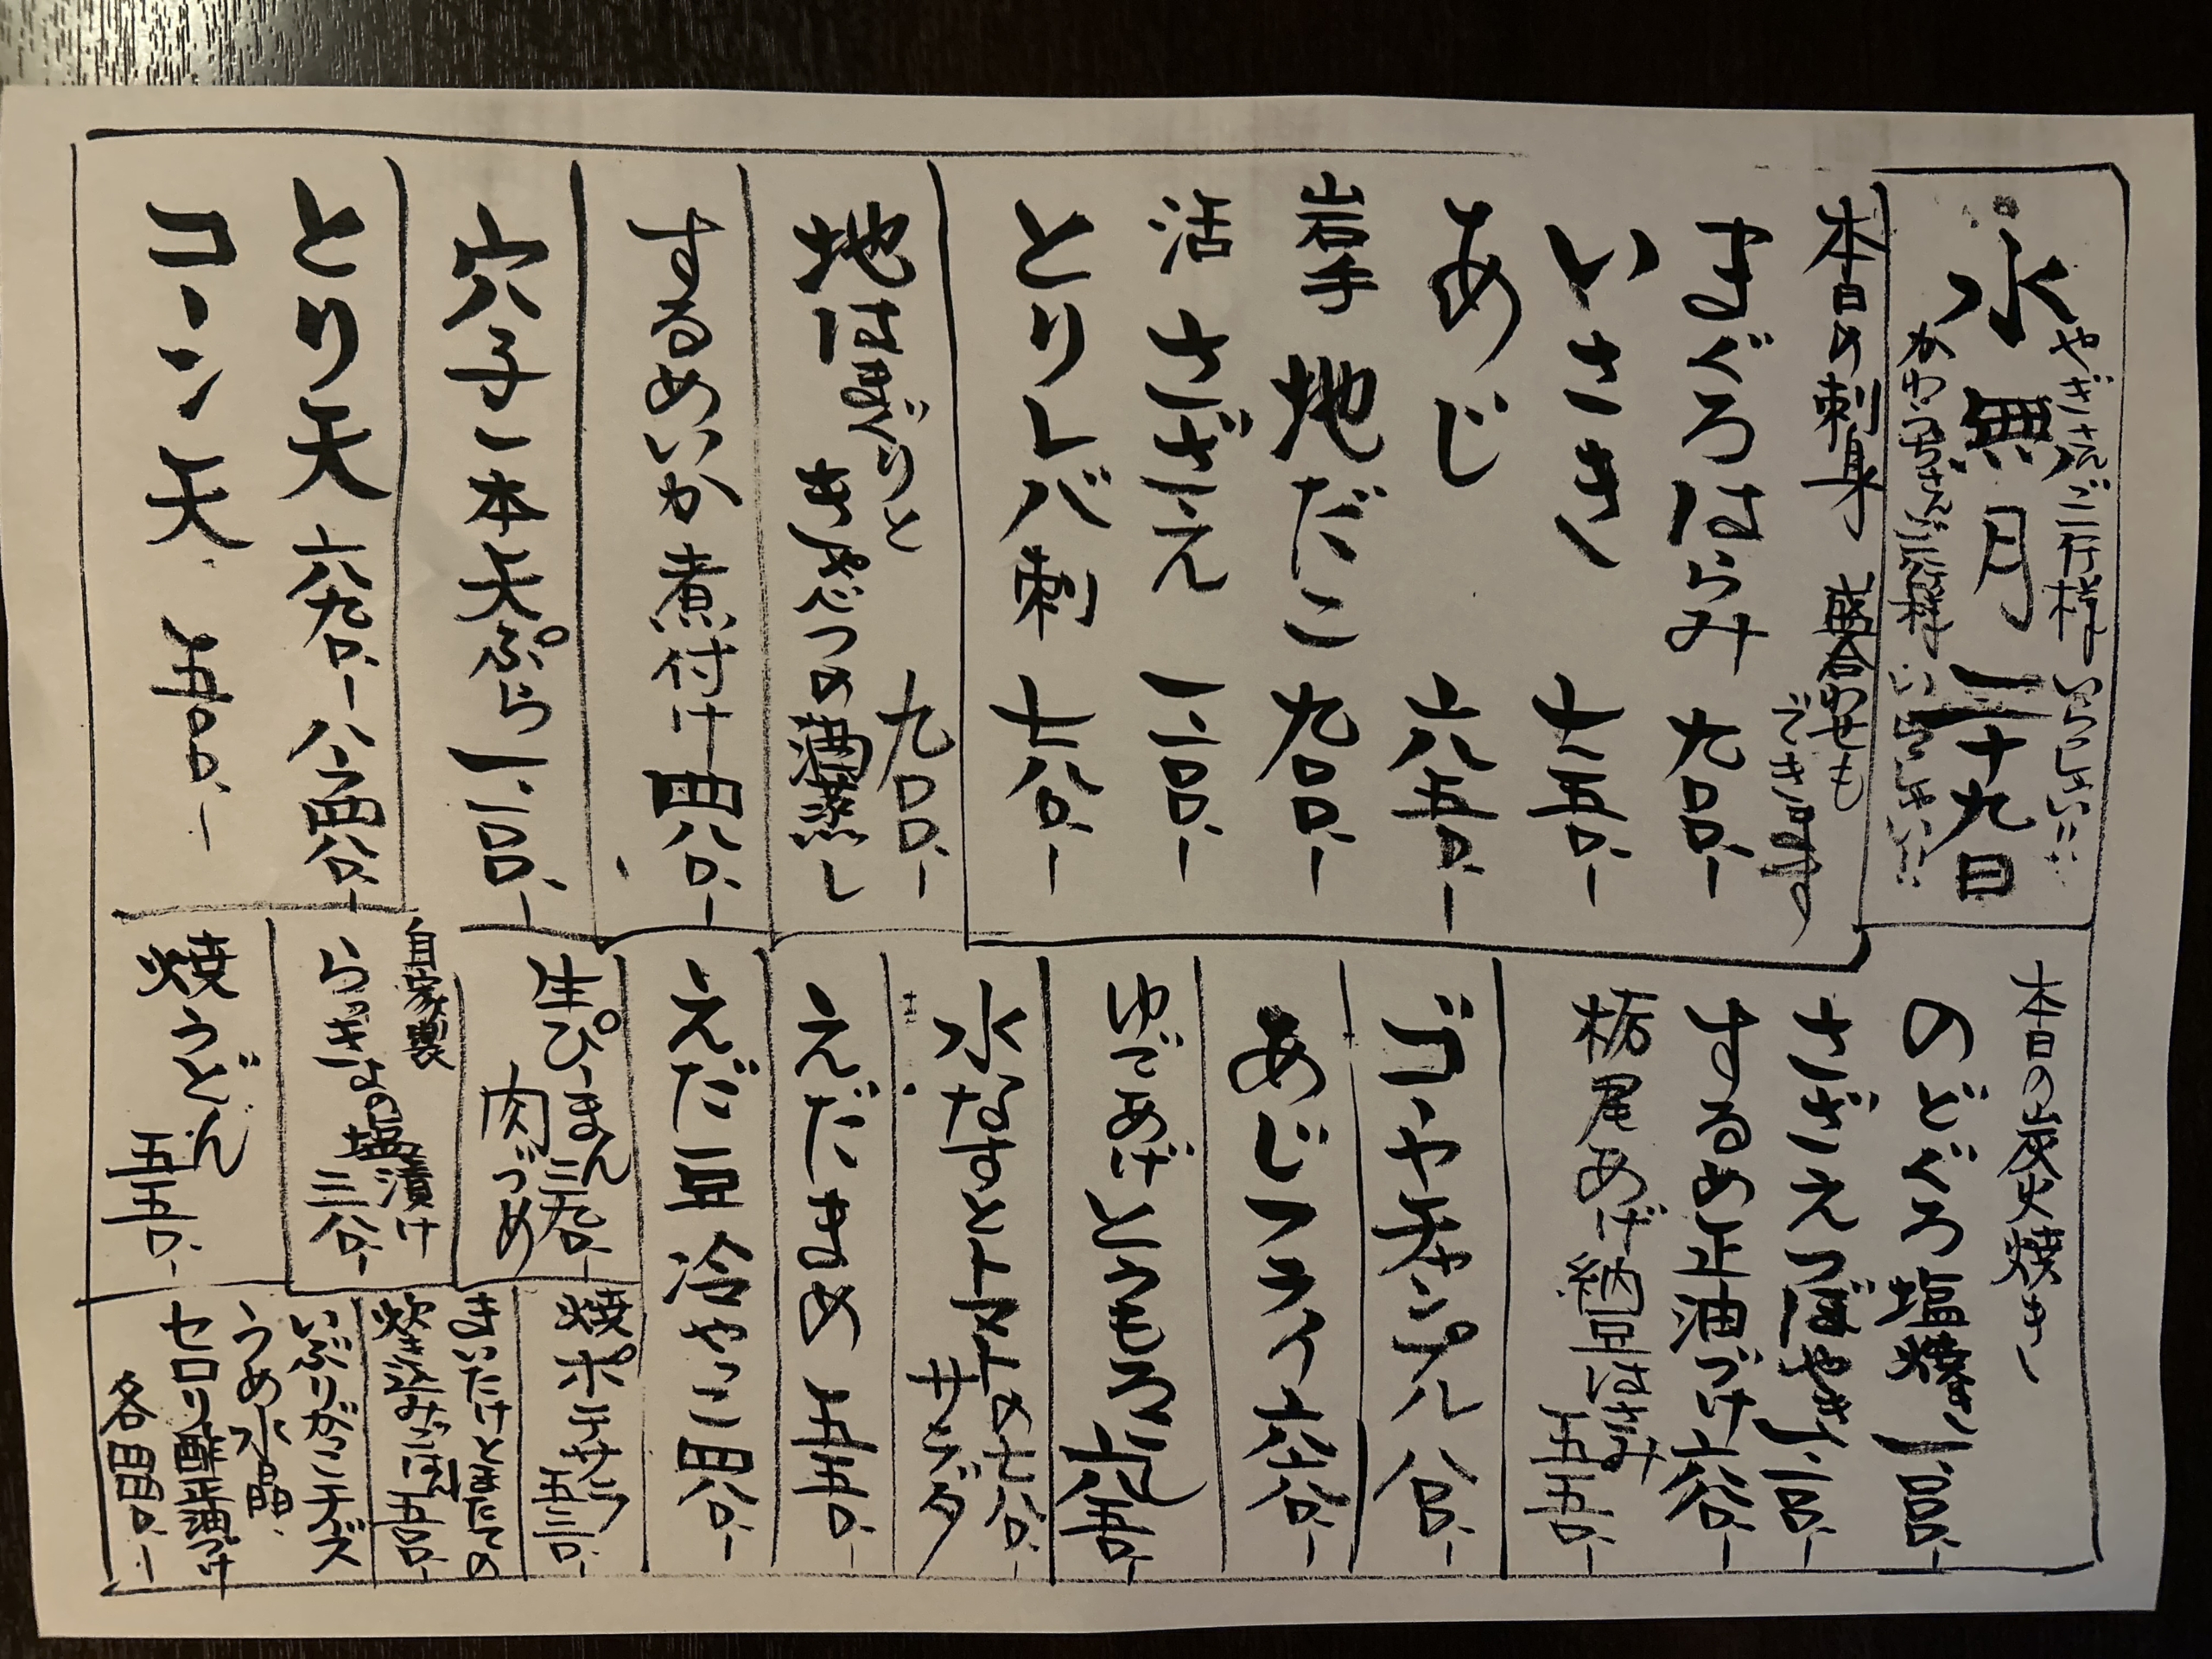 水無月二十九日
やぎさんご一行様いらっしゃい!!
かわうちさんご一行様いらっしゃい!!
本日の刺身 盛合わせも
できます
まぐろはらみ 九〇〇、ー
いさき 七五〇、ー
あじ 六五〇、ー
岩手 地だこ 九〇〇、ー
活 さざえ 一、二〇〇、ー
とりレバ刺 七八〇、ー
地はまぐりと
きゃべつの酒蒸し
九〇〇、ー
するめいか煮付け 四八〇、ー
穴子一本天ぷら 一、二〇〇、ー
とり天 六九〇、ー ハーフ四八〇、ー
コーン天 五〇〇、ー
本日の炭火焼き
のどぐろ塩焼き
さざえつぼやき 一、二〇〇、ー
するめ正油づけ 六八〇、ー
栃尾あげ納豆はさみ
五五〇、ー
ゴーヤチャンプル 八〇〇、ー
あじフライ
ゆであげとうもろこし
水なすとトマトの
サラダ
七八〇、ー
えだまめ 五五〇、ー
えだ豆冷やっこ 四八〇、ー
生ぴーまん
肉づめ
三九〇、ー
焼ポテサラ
五三〇、ー
自家製
らっきょの塩漬け
三八〇、ー
まいたけとほたての
炊き込みごはん
五〇〇、ー
焼うどん
五五〇、ー
いぶりがっこチーズ
うめ水晶
セロリ酢正油づけ
各四四〇、ー